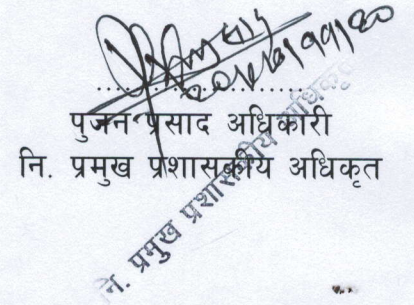 पुजन प्रसाद अधिकारी
नि. प्रमुख प्रशासकीय अधिकृत
नि. प्रमुख प्रशासकीय अधिकृत